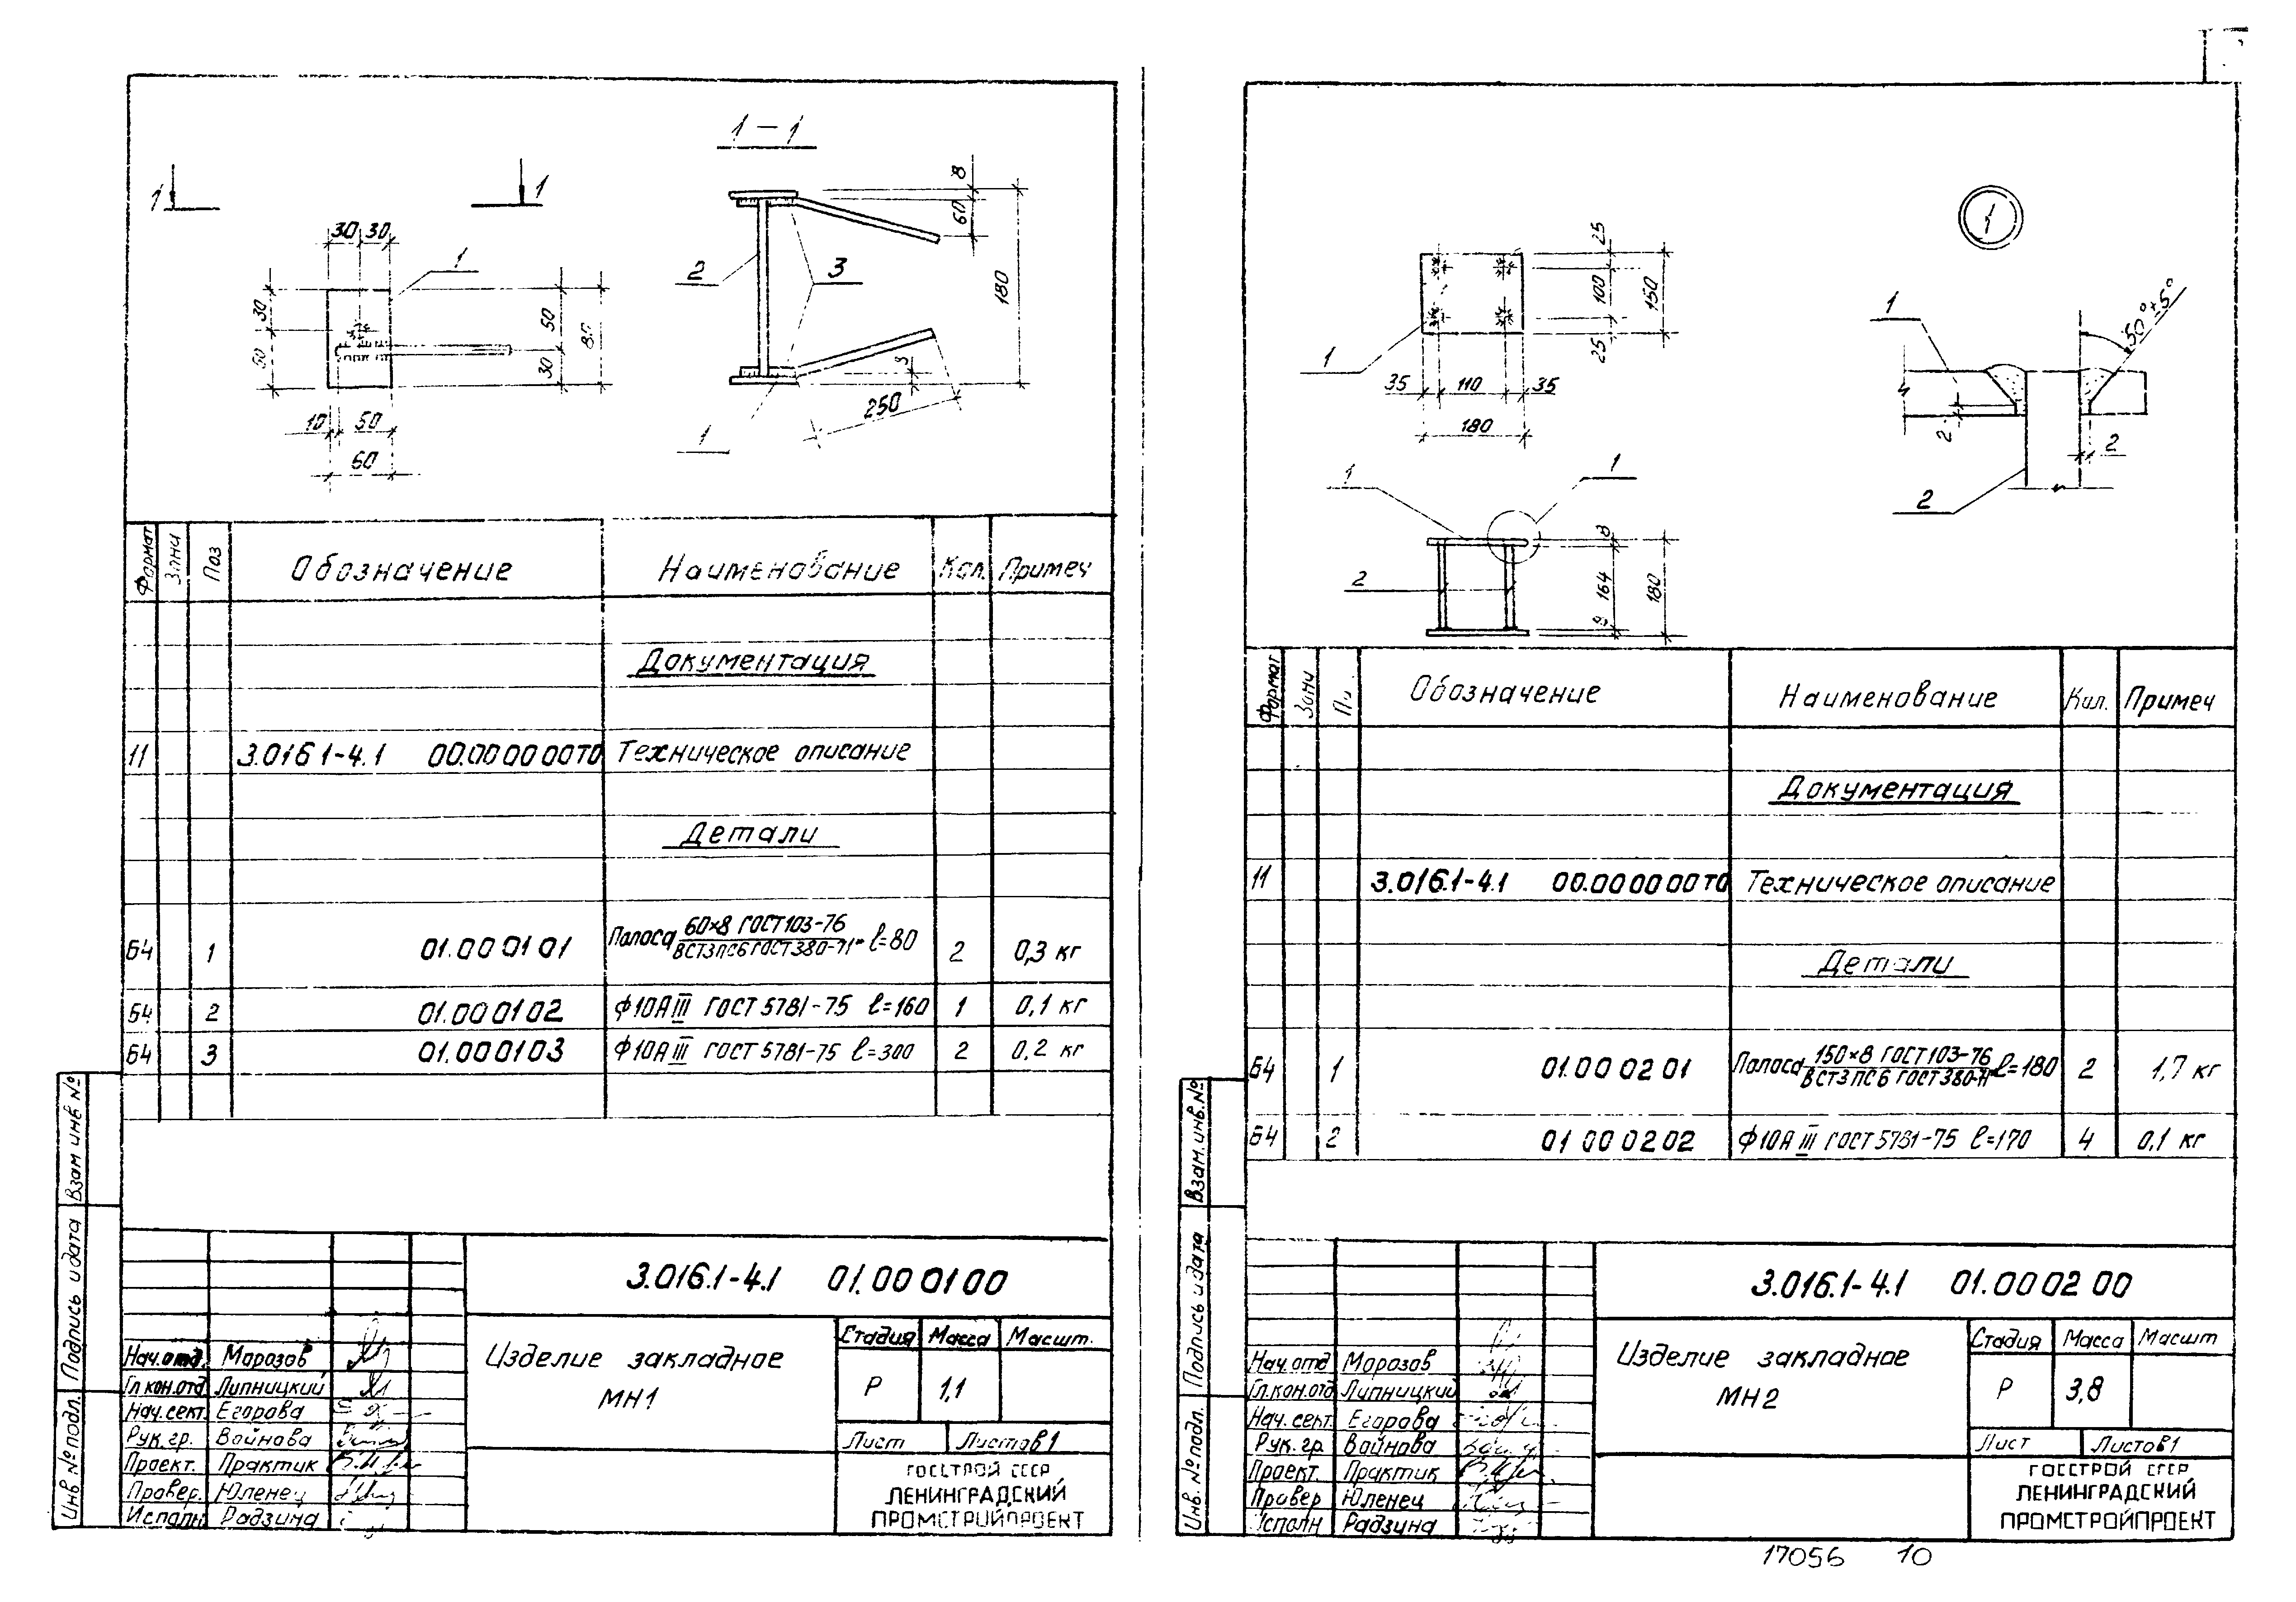 1-1
1
1
30
30
1
30
50
50
30
80
10
50
60
8
60
180
2
3
3
1
250
Формат
Зона
Поз
Обозначение
Наименование
Кол.
Примеч
Документация
11
3.016 1-4.1
00.00 00 00ТО
Техническое описание
Детали
Б4
1
01.00 01 01
Полоса 60×8 ГОСТ 103-76
ВСТ3ПС6 ГОСТ 380-71* l=80
2
0,3 кг
Б4
2
01.00 01 02
Ф10АIII ГОСТ 5781-75 l=160
1
0,1 кг
Б4
3
01.00 01 03
Ф10АIII ГОСТ 5781-75 l=300
2
0,2 кг
Взам инв №
Подпись и дата
Инв. № подл.
3.016.1-4.1 01.00 01 00
Изделие закладное
МН1
Стадия
Масса
Масшт.
Р
1,1
Лист
Листов 1
Нач.отд. Морозов
Гл кон.отд Липницкий
Нач.сект. Егорова
Рук.гр. Войнова
Проект. Практик
Провер. Юленец
Исполн Радзина
ГОССТРОЙ СССР
ЛЕНИНГРАДСКИЙ
ПРОМСТРОЙПРОЕКТ
25
100
25
150
1
35
110
35
180
1
1
50°±5°
2
2
2
1
1
2
8
164
8
180
Формат
Зона
Обозначение
Наименование
Кол.
Примеч
Документация
11
3.016.1-4.1
00.00 00 00ТО
Техническое описание
Детали
Б4
1
01.00 02 01
Полоса 150×8 ГОСТ 103-76
ВСТ3ПС6 ГОСТ 380-71* l=180
2
1,7 кг
Б4
2
01 00 02 02
Ф10А III ГОСТ 5781-75 l=170
4
0,1 кг
Взам.инв.№
Подпись и дата
Инв. № подл.
3.016.1-4.1 01.00 02 00
Изделие закладное
МН2
Стадия
Масса
Масшт
Р
3,8
Лист
Листов 1
Нач.отд Морозов
Гл.кон.отд Липницкий
Нач.сект. Егорова
Рук.гр. Войнова
Проект. Практик
Провер Юленец
Исполн Радзина
ГОССТРОЙ СССР
ЛЕНИНГРАДСКИЙ
ПРОМСТРОЙПРОЕКТ
17056 10